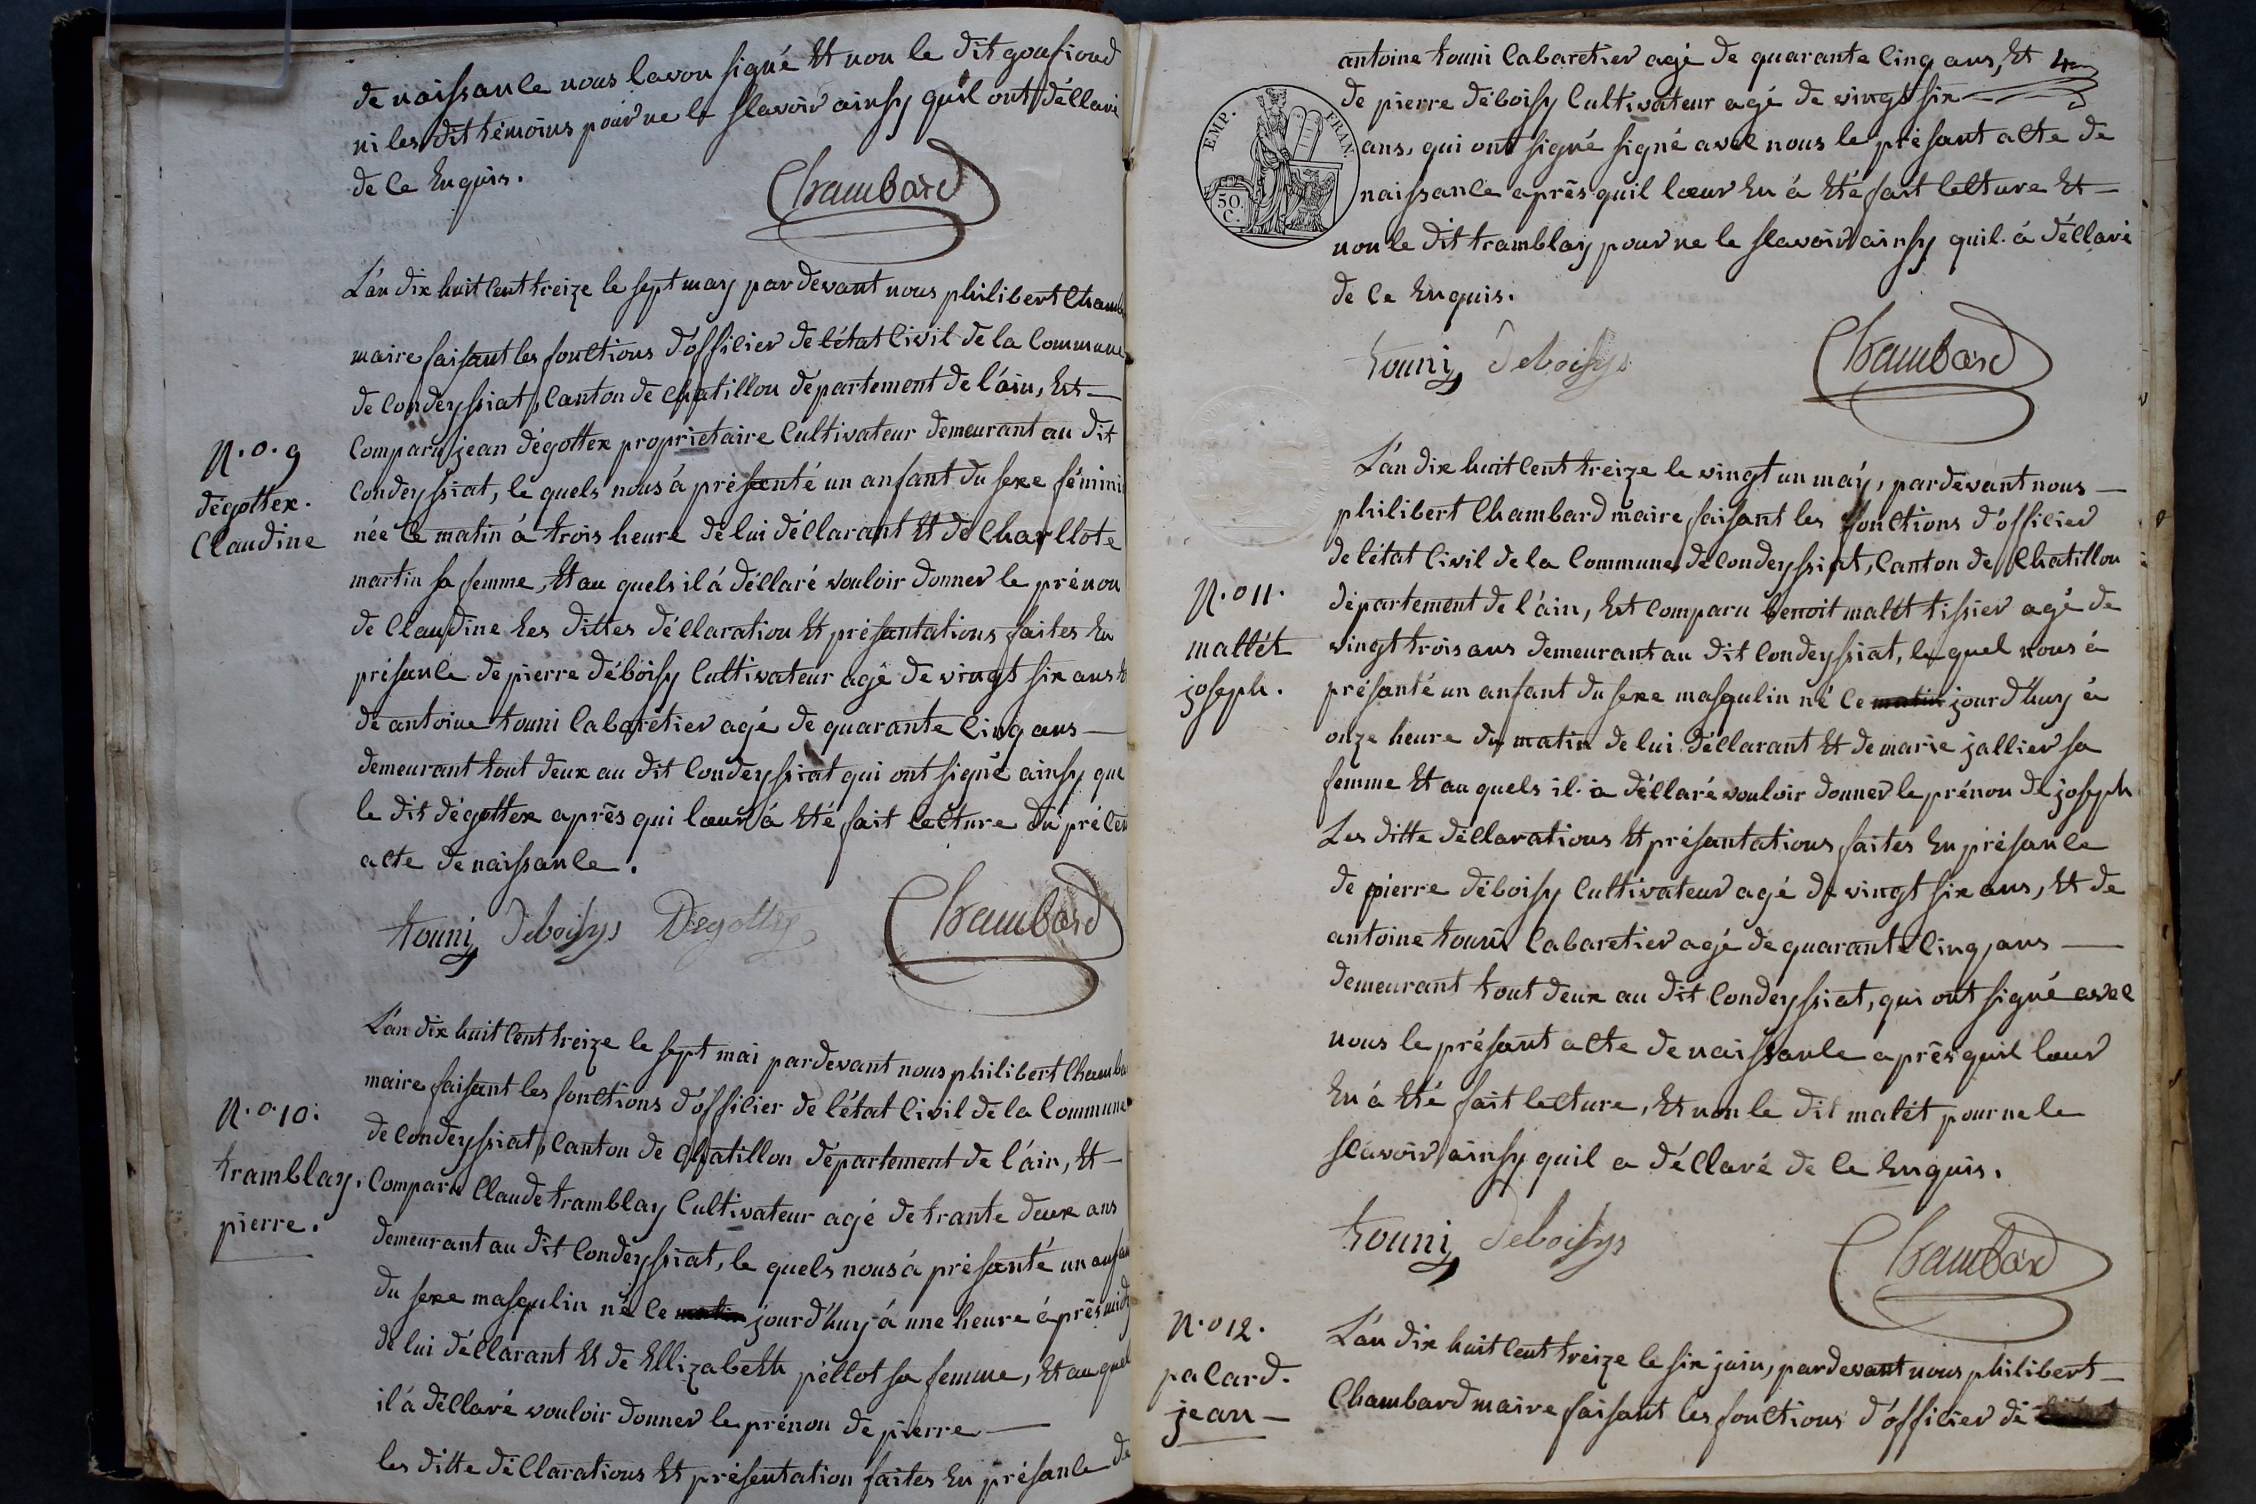 de naissance nous lavon signé Et non le dit goufioud
ni les dit témoins pour ne le scavoir ainsy quil ont déclaré
de ce Enquis.
Chambard
L'an dix huit cent treize le sept may pardevant nous philibert Chamb
maire faisant les fonctions d'officier de l'état Civil de la Commune
de Condeyssiat, Canton de Chatillon département de l'ain, Est
Comparu jean dégottex propriétaire Cultivateur demeurant au dit
Condeyssiat, le quels nous à présenté un anfant du sexe fémini
née Ce matin à trois heure de lui déclarant Et de Charllote
martin sa femme, Et au quels il à déclaré vouloir donner le prénon
de Claudine Les dittes déclaration Et présantations faites En
présance de pierre déboisy Cultivateur agé de vingt six ans Et
de antoine touni Cabaretier agé de quarante Cinq ans
demeurant tout deux au dit Condeyssiat qui ont signé ainsy que
le dit dégottex aprés qui lœur à Eté fait lecture du précen
acte de naissance.
N.o.9
dégottex.
Claudine
touni deboisys Degottex Chambard
L'an dix huit Cent treize le sept mai pardevant nous philibert Chamba
maire faisant les fonctions d'officier de l'état Civil de la Commune
de Condeyssiat, Canton de Chatillon département de l'ain, Et
Comparu Claude tramblay Cultivateur agé de trante deux ans
demeurant au dit Condeyssiat, le quels nous à présanté un anfan
du sexe masqulin né Ce matin jourd'huy à une heure éprés midy
de lui déclarant Et de Ellizabeth péllot sa femme, Et au quel
il à déclaré vouloir donner le prénon de pierre
les ditte déclarations Et présentation faites En présance de
N.o.10.
tramblay.
pierre.
antoine touni Cabaretier agé de quarante Cinq ans, Et
de pierre déboisy Cultivateur agé de vingt six
ans, qui ont signé signé avec nous le présant acte de
naissance aprés quil lœur En à Eté fait lecture Et
non le dit tramblay pour ne le scavoir ainsy quil à déclaré
de Ce Enquis.
EMP. FRAN.
50. C.
touni deboisys Chambard
L'an dix huit Cent treize le vingt un may, pardevant nous
philibert Chambard maire faisant les fonctions d'officier
de l'état Civil de la Commune de Condeyssiat, Canton de Chatillon
département de l'ain, Est Comparu benoit malét tissier agé de
vingt trois ans demeurant au dit Condeyssiat, le quel nous à
présanté un anfant du sexe masqulin né Ce matin jourd'huy à
onze heure du matin de lui déclarant Et de marie jallier sa
femme Et au quels il à déclaré vouloir donner le prénon de joseph
Les ditte déclarations Et présantations faites En présance
de pierre déboisy Cultivateur agé de vingt six ans, Et de
antoine touni Cabaretier agé de quarante Cinq ans
demeurant tout deux au dit Condeyssiat, qui ont signé avec
nous le présant acte de naissance aprés quil lœur
En à Eté fait lecture, Et non le dit malét pour ne le
scavoir ainsy quil a déclaré de Ce Enquis.
N.o 11.
mallét
joseph.
touni deboisys Chambard
N.o 12.
pacard.
jean
L'an dix huit Cent treize le six juin, pardevant nous philibert
Chambard maire faisant les fonctions d'officier de